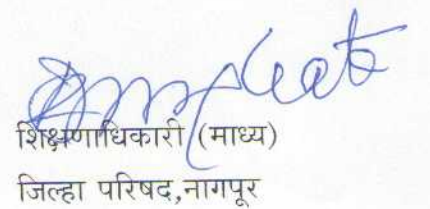 शिक्षणाधिकारी (माध्य)
जिल्हा परिषद,नागपूर